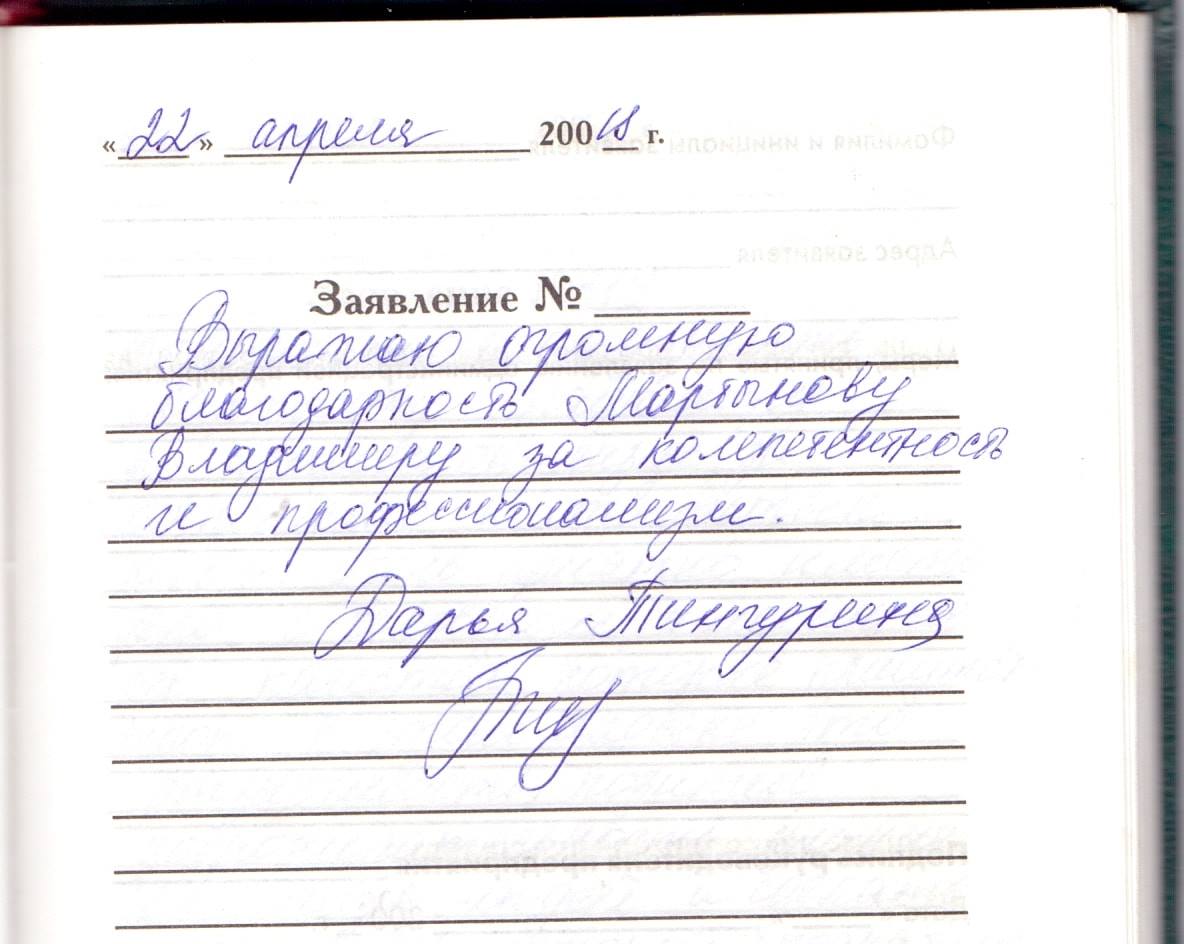 «22» апреля 200 г.
Заявление № ______
Выражаю огромную
благодарность Мартынову
Владимиру за компетентность
и профессионализм.
Дарья Тингурина